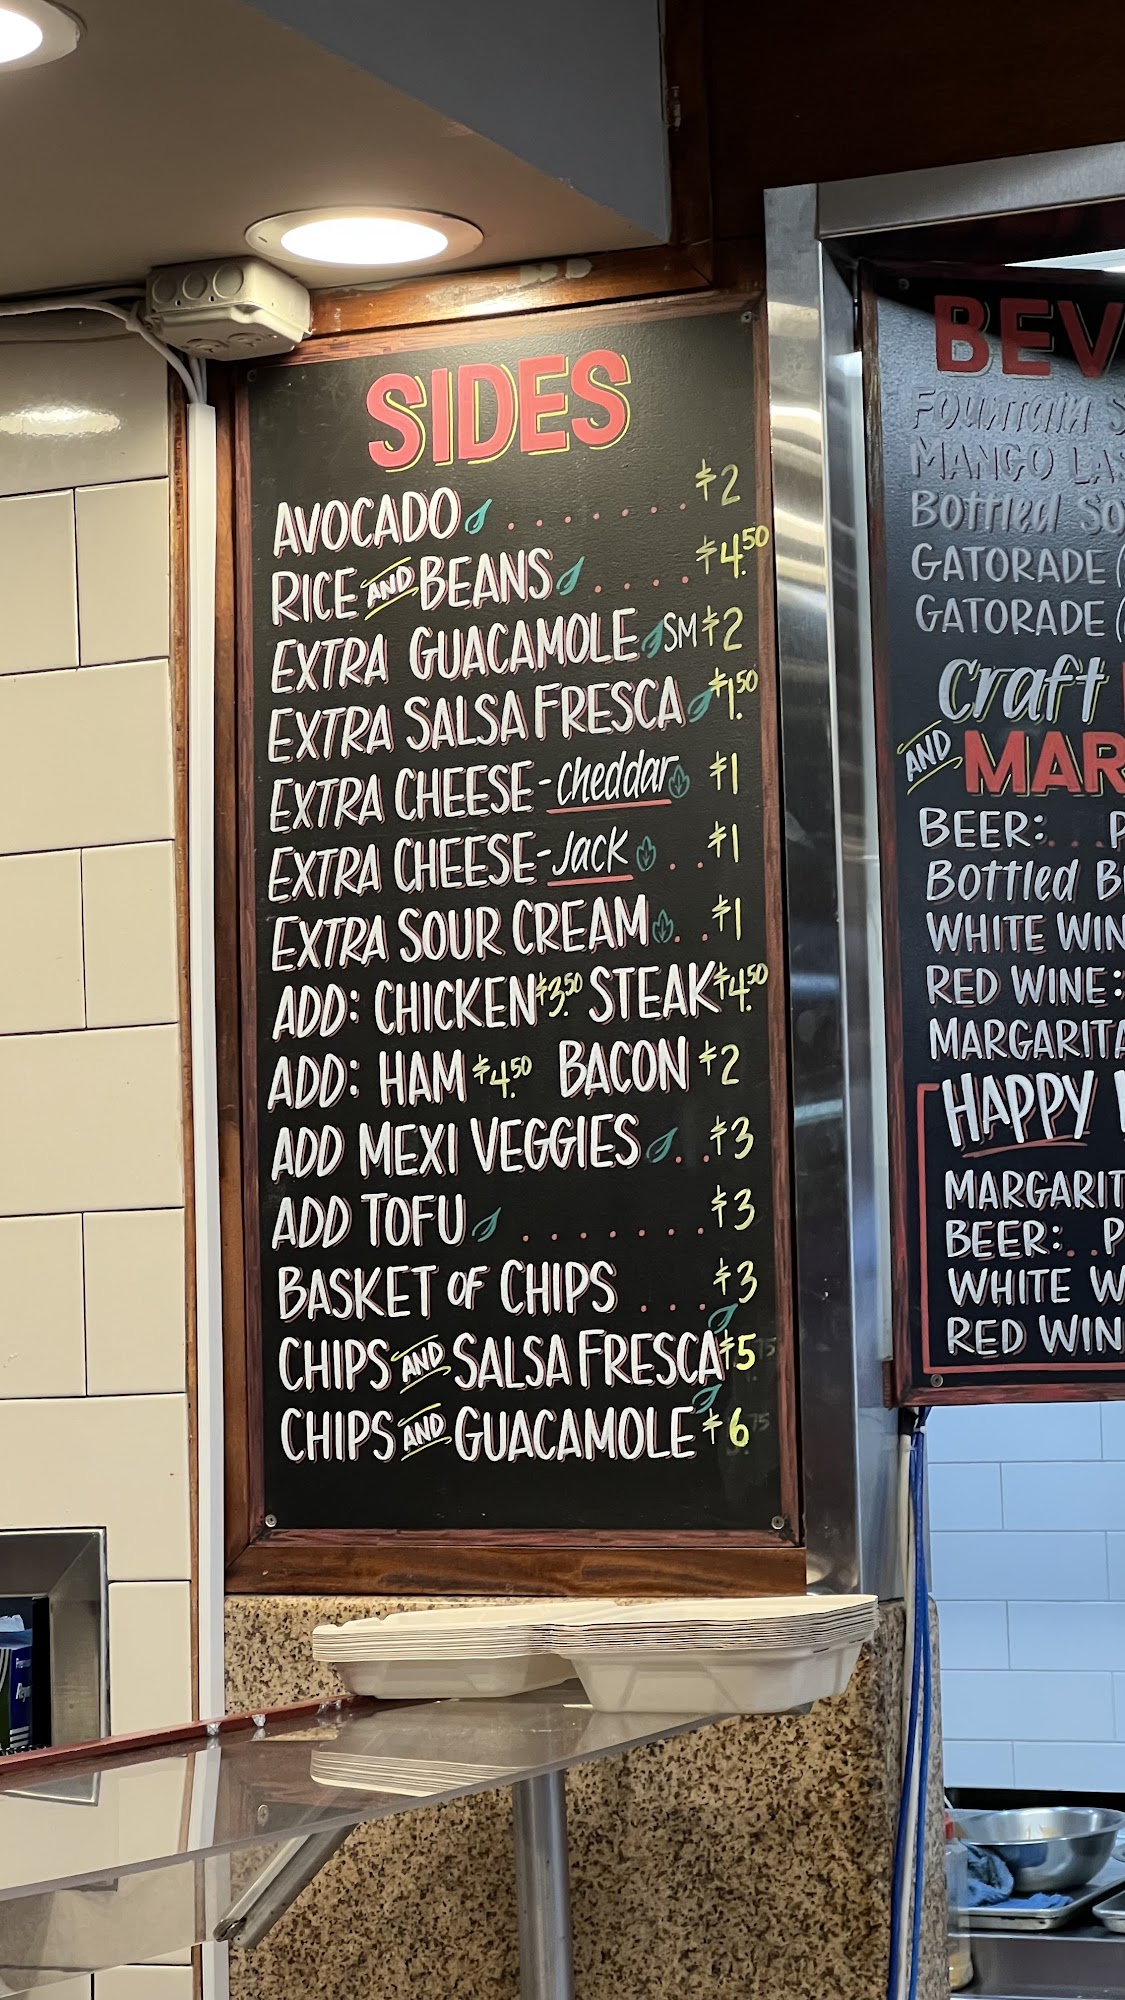 SIDES
AVOCADO . . . . . . . $2
RICE AND BEANS . . . . . $4.50
EXTRA GUACAMOLE SM $2
EXTRA SALSA FRESCA $1.50
EXTRA CHEESE - cheddar $1
EXTRA CHEESE - Jack . . $1
EXTRA SOUR CREAM . . $1
ADD: CHICKEN $3.50 STEAK $4.50
ADD: HAM $4.50 BACON $2
ADD MEXI VEGGIES . . $3
ADD TOFU . . . . . . . $3
BASKET OF CHIPS . . . . $3
CHIPS AND SALSA FRESCA $5
CHIPS AND GUACAMOLE $6
BEV
FOUNTAIN S
MANGO LAS
Bottled So
GATORADE (
GATORADE (
Craft
AND MAR
BEER: . . . P
Bottled B
WHITE WIN
RED WINE:
MARGARITA
HAPPY
MARGARIT
BEER: . . P
WHITE W
RED WIN